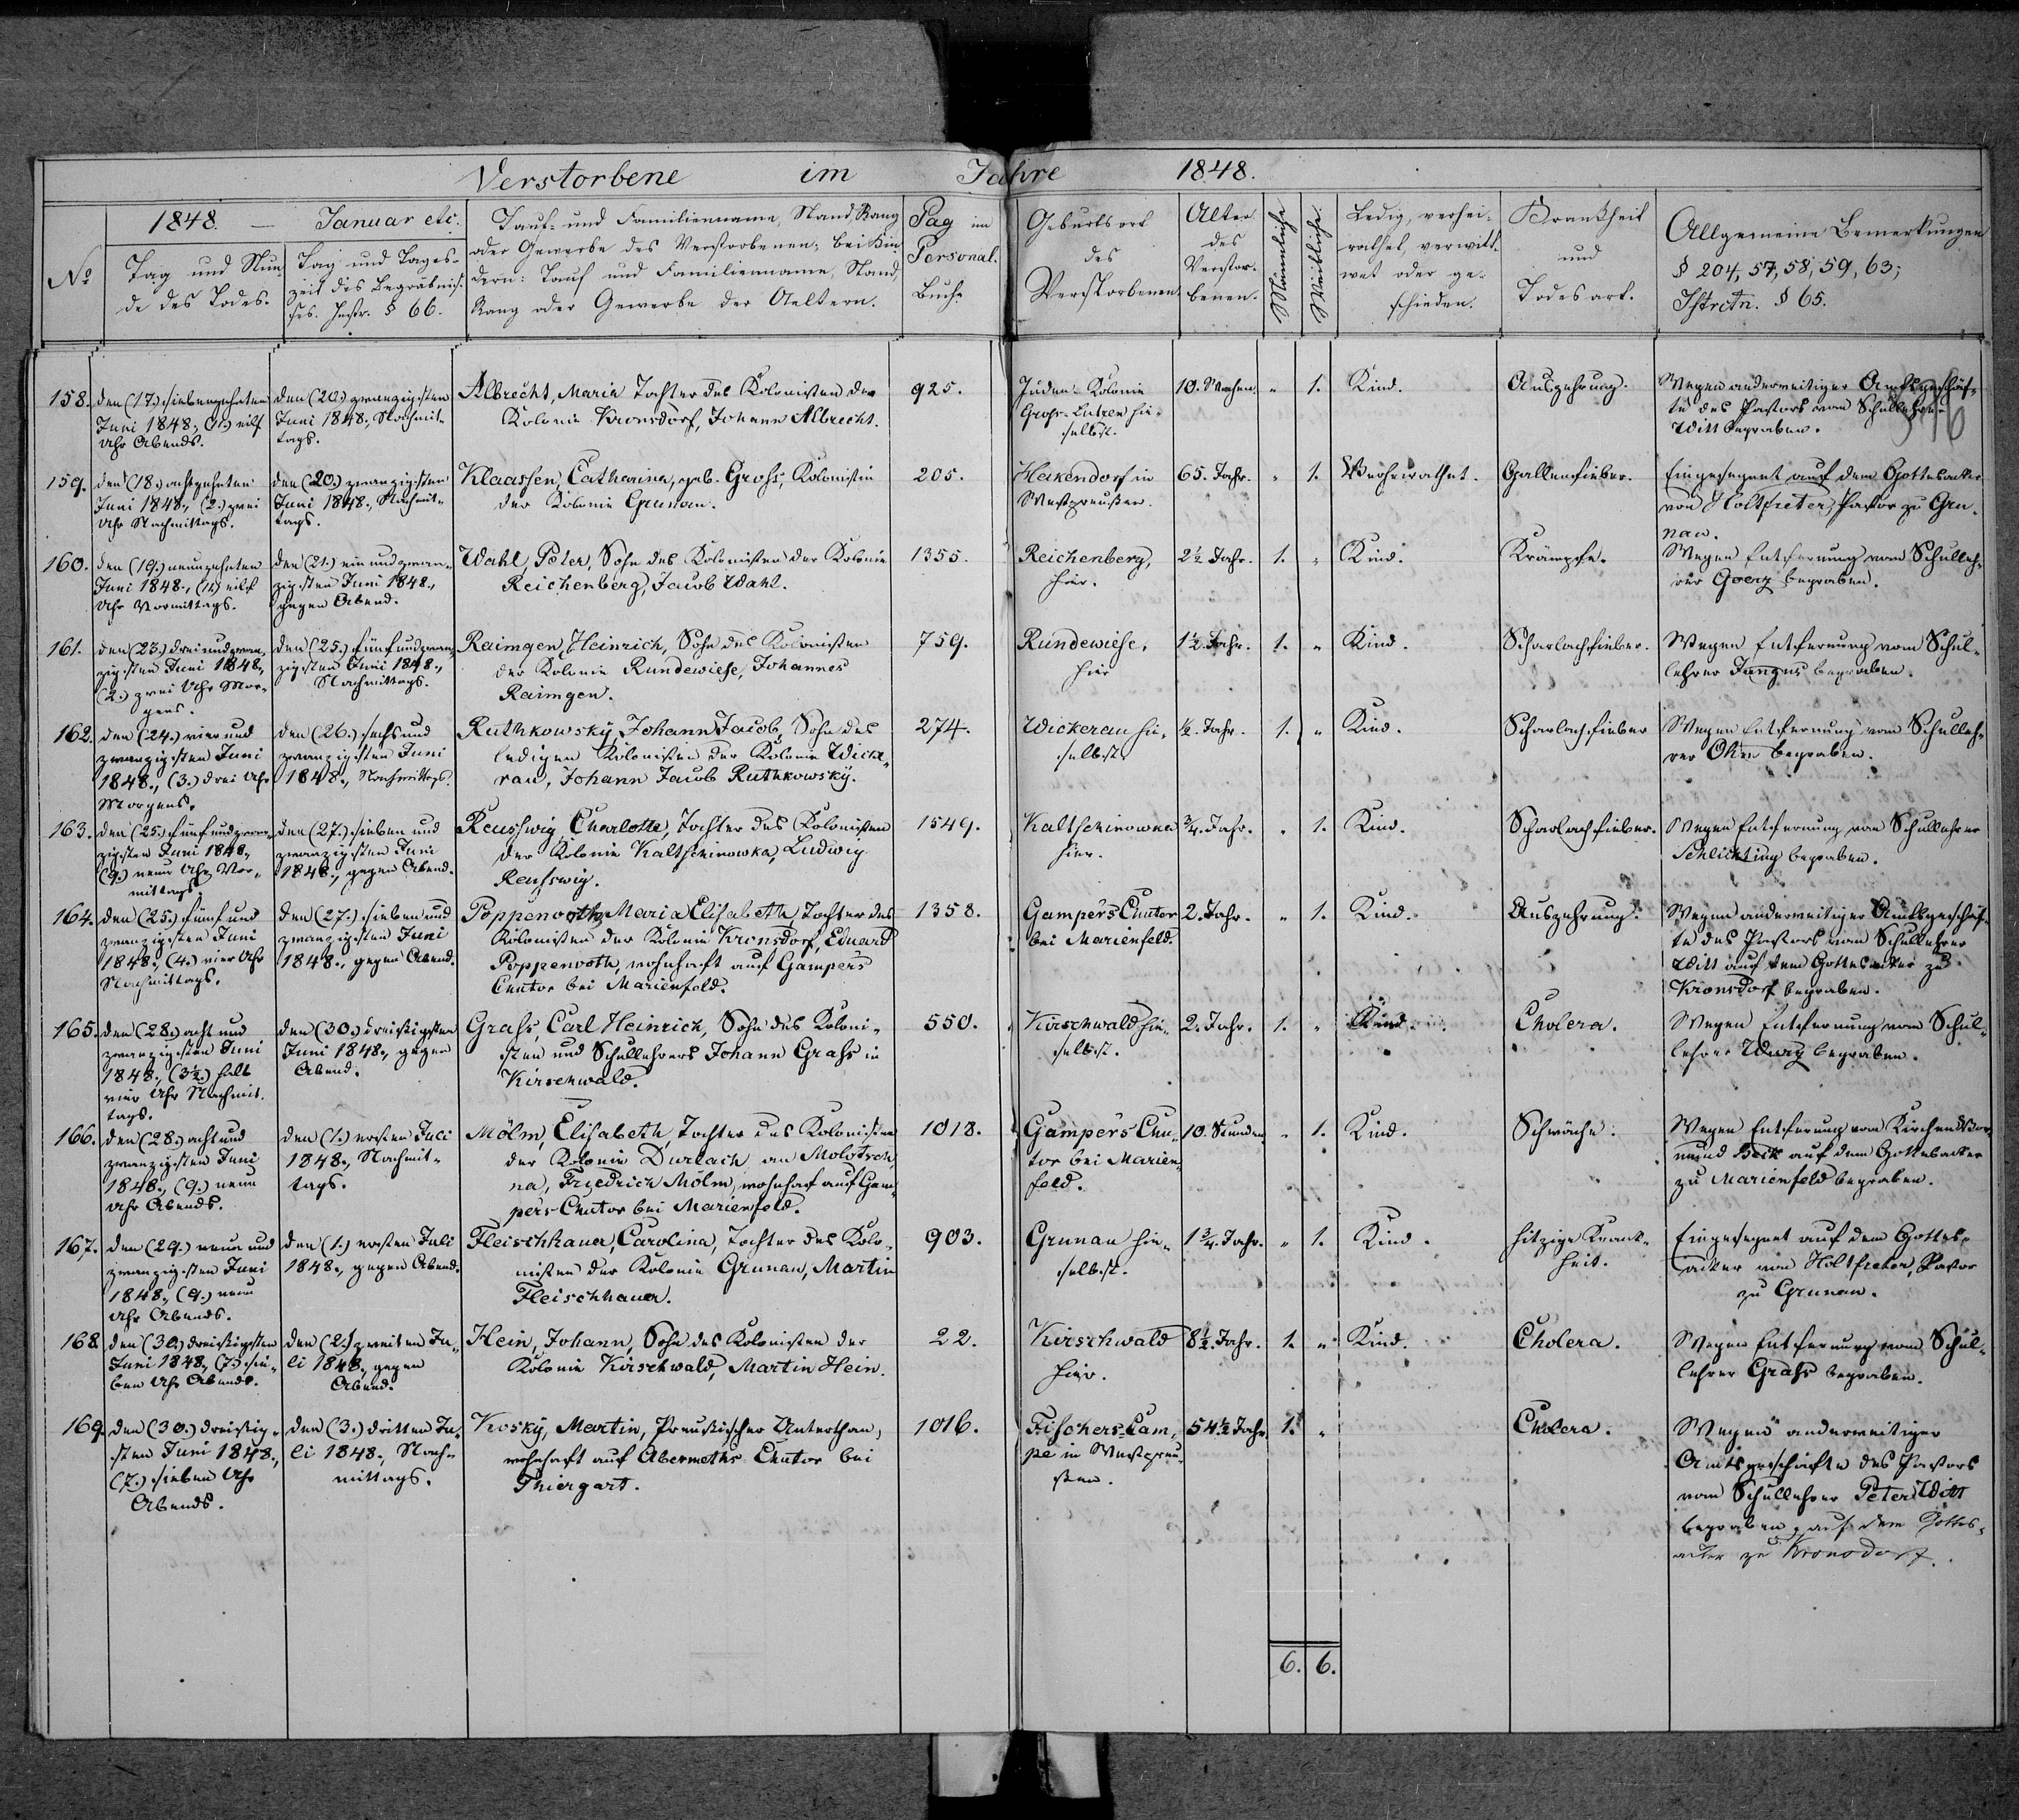 Verstorbene im Jahre 1848.
No
1848. — Januar etc.
Tag und Stun
de des Todes.
Tag und Tages-
zeit des Begräbnis-
ses. Instr. § 66.
Tauf- und Familienname, Stand, Rang
oder Gewerbe des Verstorbenen; bei Kin
dern: Tauf und Familienname, Stand,
Rang oder Gewerbe der Aeltern.
Pag im
Personal.
Buch.
Geburtsort
des
Verstorbenen
Alter
des
Verstor-
benen.
Männliche
Weibliche
Ledig, verhei-
rathet, verwitt-
wet oder ge-
schieden.
Krankheit
und
Todesart.
Allgemeine Bemerkungen
§ 204, 57, 58, 59, 63;
Istrctn. § 65.
158.
den (17.) siebenzehnten
Juni 1848., (11.) eilf
Uhr Abends.
den (20.) zwanzigsten
Juni 1848., Nachmit-
tags.
Albrecht, Maria Tochter des Kolonisten der
Kolonie Kronsdorf, Johann Albrecht.
925.
Juden-Kolonie
Gross-Lutzen hie-
selbst.
10. Wochen.
" 1.
Kind.
Auszehrung.
Wegen anderweitiger Amtsgeschäf-
te des Pastors vom Schullehrer
Witt begraben.
159.
den (18.) achtzehnten
Juni 1848., (2.) zwei
Uhr Nachmittags.
den (20.) zwanzigsten
Juni 1848., Nachmit-
tags.
Klaassen, Catharina, geb. Grohs, Kolonistin
der Kolonie Grunau.
205.
Hakendorf in
Westpreußen.
65. Jahr.
" 1.
Verheirathet.
Gallenfieber.
Eingesegnet auf dem Gottesacker
von Holtfreter, Pastor zu Gru-
nau.
160.
den (19.) neunzehnten
Juni 1848., (11.) eilf
Uhr Vormittags.
den (21.) ein und zwan-
zigsten Juni 1848.,
gegen Abend.
Wahl, Peter, Sohn des Kolonisten der Kolonie
Reichenberg, Jacob Wahl.
1355.
Reichenberg,
hier.
2½ Jahr.
1. "
Kind.
Krämpfe.
Wegen Entfernung vom Schulleh-
rer Goerz begraben.
161.
den (23.) dreiundzwan-
zigsten Juni 1848.,
(2.) zwei Uhr Mor-
gens.
den (25.) fünfundzwan-
zigsten Juni 1848.,
Nachmittags.
Raimgen, Heinrich, Sohn des Kolonisten
der Kolonie Rundewiese, Johannes
Raimgen.
759.
Rundewiese,
hier
1½ Jahr.
1. "
Kind.
Scharlachfieber.
Wegen Entfernung vom Schul-
lehrer Jungus begraben.
162.
den (24.) vier und
zwanzigsten Juni
1848., (3.) drei Uhr
Morgens.
den (26.) sechs und
zwanzigsten Juni
1848., Nachmittags.
Ruthkowsky, Johann Jacob, Sohn des
ledigen Kolonisten der Kolonie Wicke-
rau, Johann Jacob Ruthkowsky.
274.
Wickerau hie-
selbst.
½. Jahr.
1. "
Kind.
Scharlachfieber
Wegen Entfernung vom Schulleh-
rer Ohm begraben.
163.
den (25.) fünf und zwan-
zigsten Juni 1848.,
(9.) neun Uhr Vor-
mittags.
den (27.) sieben und
zwanzigsten Juni
1848., gegen Abend.
Reusswig, Charlotte, Tochter des Kolonisten
der Kolonie Kaltschinowka, Ludwig
Reusswig.
1549.
Kaltschinowka
hier.
¾. Jahr.
" 1.
Kind.
Scharlachfieber.
Wegen Entfernung vom Schullehrer
Schlichting begraben.
164.
den (25.) fünf und
zwanzigsten Juni
1848., (4.) vier Uhr
Nachmittags.
den (27.) sieben und
zwanzigsten Juni
1848., gegen Abend.
Poppenroth, Maria Elisabeth, Tochter des
Kolonisten der Kolonie Kronsdorf, Eduard
Poppenroth, wohnhaft auf Gampers
Chutor bei Marienfeld.
1358.
Gampers Chutor
bei Marienfeld.
2. Jahr.
" 1.
Kind.
Auszehrung.
Wegen anderweitiger Amtsgeschäf-
te des Pastors vom Schullehrer
Witt auf dem Gottesacker zu
Kronsdorf begraben.
165.
den (28.) acht und
zwanzigsten Juni
1848., (3½.) halb
vier Uhr Nachmit-
tags.
den (30.) dreißigsten
Juni 1848., gegen
Abend.
Grahs, Carl Heinrich, Sohn des Koloni-
sten und Schullehrers Johann Grahs in
Kirschwald.
550.
Kirschwald hie-
selbst.
2. Jahr.
1. "
Kind.
Cholera.
Wegen Entfernung vom Schul-
lehrer Wurz begraben.
166.
den (28.) acht und
zwanzigsten Juni
1848., (9.) neun
Uhr Abends.
den (1.) ersten Juli
1848., Nachmit-
tags.
Mölm, Elisabeth, Tochter des Kolonisten
der Kolonie Durlach an Molotsch-
na, Friedrich Mölm, wohnhaf auf Gam-
pers-Chutor bei Marienfeld.
1018.
Gampers Chu-
tor bei Marien-
feld.
10. Stunden
" 1.
Kind.
Schwäche.
Wegen Entfernung vom Kirchen Vor-
mund Beik auf dem Gottesacker
zu Marienfeld begraben.
167.
den (29.) neun und
zwanzigsten Juni
1848., (9.) neun
Uhr Abends.
den (1.) ersten Juli
1848., gegen Abend.
Fleischhauer, Carolina, Tochter des Kolo-
nisten der Kolonie Grunau, Martin
Fleischhauer.
903.
Grunau hie-
selbst.
1¾. Jahr.
" 1.
Kind.
hitzige Krank-
heit.
Eingesegnet auf dem Gottes-
acker von Holtfreter, Pastor
zu Grunau.
168.
den (30.) dreißigsten
Juni 1848., (7.) sie-
ben Uhr Abends.
den (2.) zweiten Ju-
li 1848., gegen
Abend.
Hein, Johann, Sohn des Kolonisten der
Kolonie Kirschwald, Martin Hein.
22.
Kirschwald
hier.
8½. Jahr.
1. "
Kind.
Cholera.
Wegen Entfernung vom Schul-
lehrer Grahs begraben.
169.
den (30.) dreißig-
sten Juni 1848.,
(7.) sieben Uhr
Abends.
den (3.) dritten Ju-
li 1848., Nach-
mittags.
Kosky, Martin, Preußischer Unterthan,
wohnhaft auf Abermeths Chutor bei
Thiergart.
1016.
Fischers-Cam-
pe in Westpreu-
ßen.
54½ Jahr
1. "
Cholera.
Wegen anderweitiger
Amtsgeschäfte des Pastors
vom Schullehrer Peter Witt
begraben, auf dem Gottes-
acker zu Kronsdorf.
6. 6.